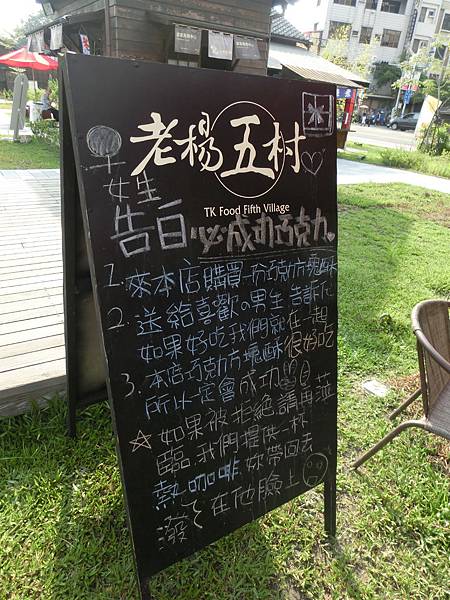 老楊五村
TK Food Fifth Village
女生
告白必成功巧克力
1. 來本店購買一份巧克力方塊酥
2. 送給喜歡の男生 告訴他
如果好吃我們就在一起
3. 本店巧克力方塊酥很好吃
所以一定會成功
☆如果被拒絕請再蒞
臨.我們提供一杯
熱咖啡.妳帶回去
潑在他臉上